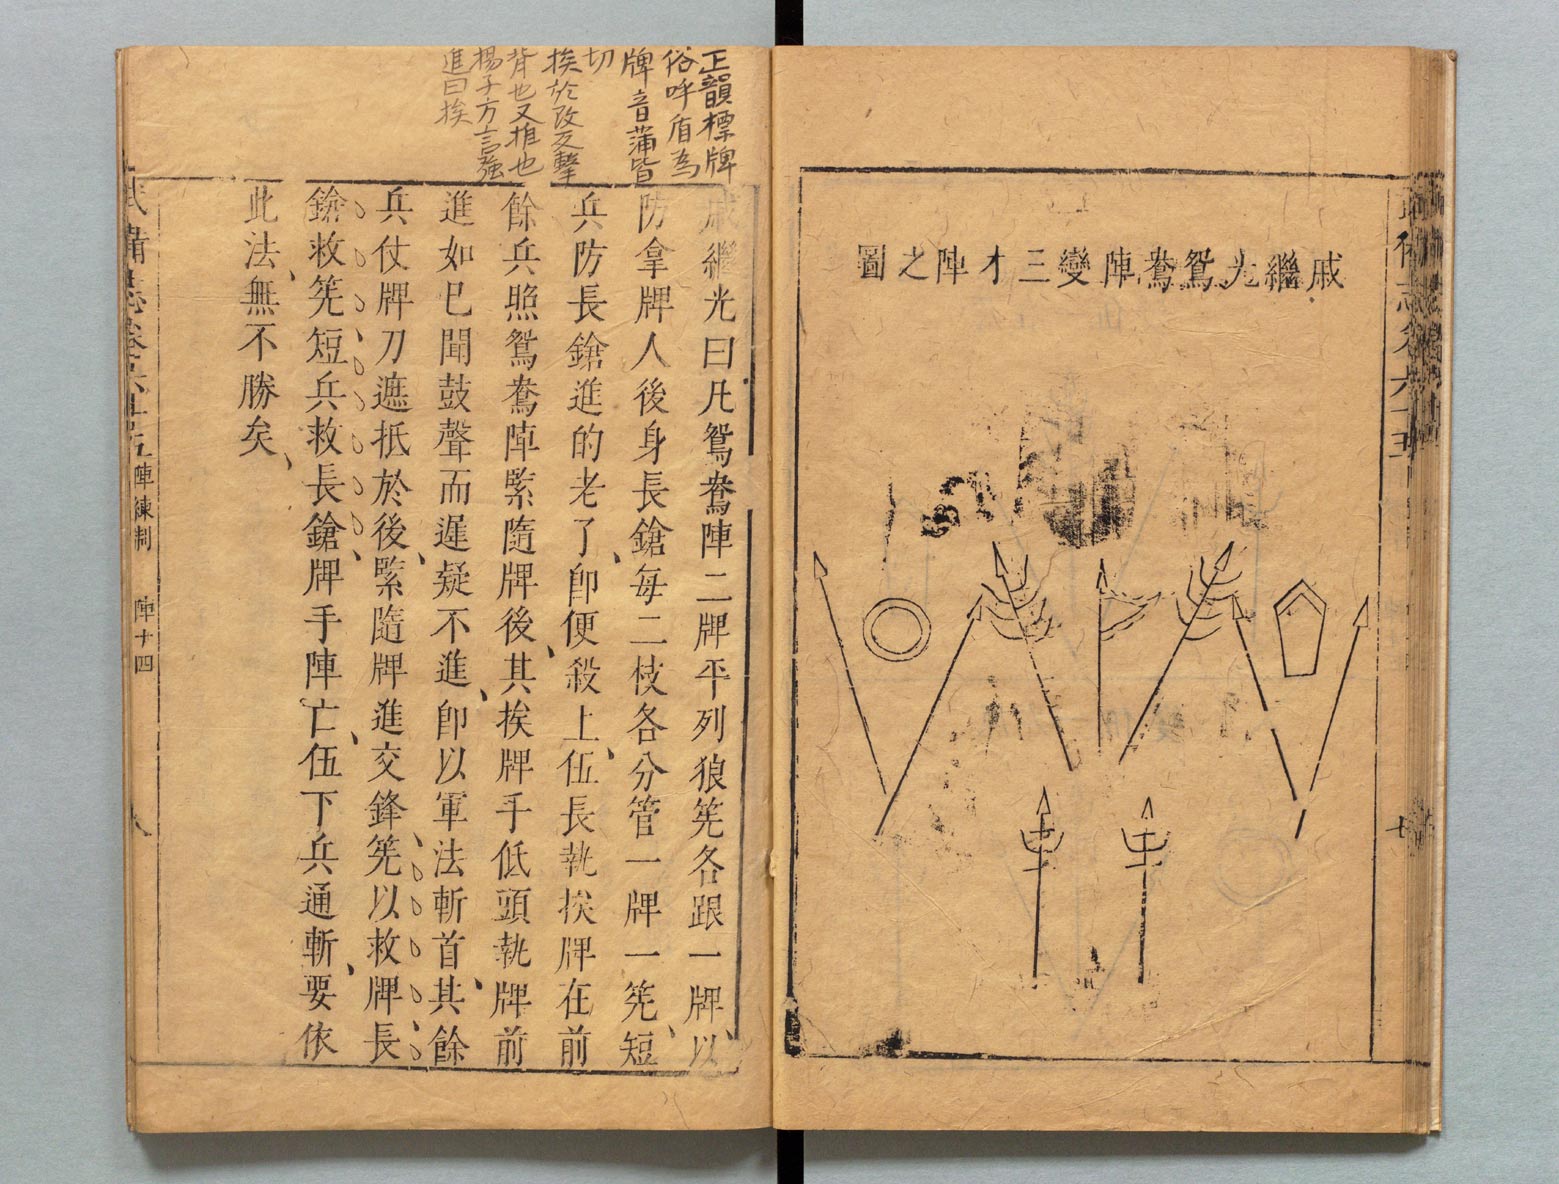 戚繼光鴛鴦陣變三才陣之圖
七
正韻標牌
俗呼盾為
牌音蒲皆
切
挨於改反擊
背也又推也
揚子方言強
進曰挨
戚繼光曰凡鴛鴦陣二牌平列狼筅各跟一牌、以
防拿牌人後身長鎗每二枝各分管一牌一筅、短
兵防長鎗進的老了、卽便殺上、伍長執挨牌在前
餘兵照鴛鴦陣緊隨牌後、其挨牌手低頭執牌前
進如巳聞鼓聲而遲疑不進、卽以軍法斬首、其餘
兵仗牌刀遮抵於後、緊隨牌進交鋒、筅以救牌、長
鎗救筅、短兵救長鎗、牌手陣亡、伍下兵通斬、要依
此法、無不勝矣、
陣練制 陣十四
八